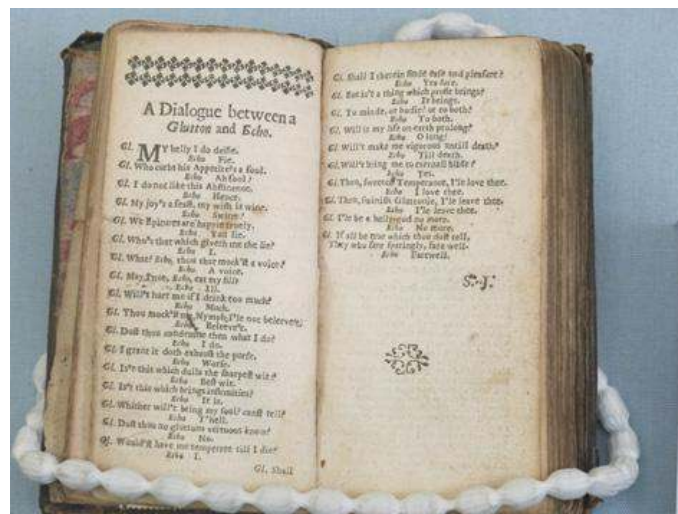 A Dialogue between a
Glutton and Echo.
Gl. MY belly I do deifie.
Echo Fie.
Gl. Who curbs his Appetite's a fool.
Echo Ah fool!
Gl. I do not like this Abstinence.
Echo Hence.
Gl. My joy's a feast, my wish is wine.
Echo Swine!
Gl. We Epicures are happie truely.
Echo You lie.
Gl. Who's that which giveth me the lie?
Echo I.
Gl. What? Echo, thou that mock'st a voice?
Echo A voice.
Gl. May I not, Echo, eat my fill?
Echo Ill.
Gl. Will't hurt me if I drink too much?
Echo Much.
Gl. Thou mock'st me, Nymph, I'le not beleeve't;
Echo Beleeve't.
Gl. Dost thou condemne then what I do?
Echo I do.
Gl. I grant it doth exhaust the purse.
Echo Worse.
Gl. Is't this which dulls the sharpest wit?
Echo Best wit.
Gl. Is't this which brings infirmities?
Echo It is.
Gl. Whither will't bring my soul? canst tell?
Echo T'hell.
Gl. Dost thou no gluttons vertuous know?
Echo No.
Gl. Would'st have me temperate till I die?
Echo I.
Gl. Shall
Gl. Shall I therein finde ease and pleasure?
Echo Yea sure.
Gl. But is't a thing which profit brings?
Echo It brings.
Gl. To minde, or bodie? or to both?
Echo To both.
Gl. Will it my life on earth prolong?
Echo O long!
Gl. Will't make me vigorous untill death?
Echo Till death.
Gl. Will't bring me to eternall blisse?
Echo Yes.
Gl. Then, sweetest Temperance, I'le love thee.
Echo I love thee.
Gl. Then, swinish Gluttonie, I'le leave thee.
Echo I'le leave thee.
Gl. I'le be a belly-god no more.
Echo No more.
Gl. If all be true which thou dost tell,
They who fare sparingly, fare well.
Echo Farewell.
S. J.